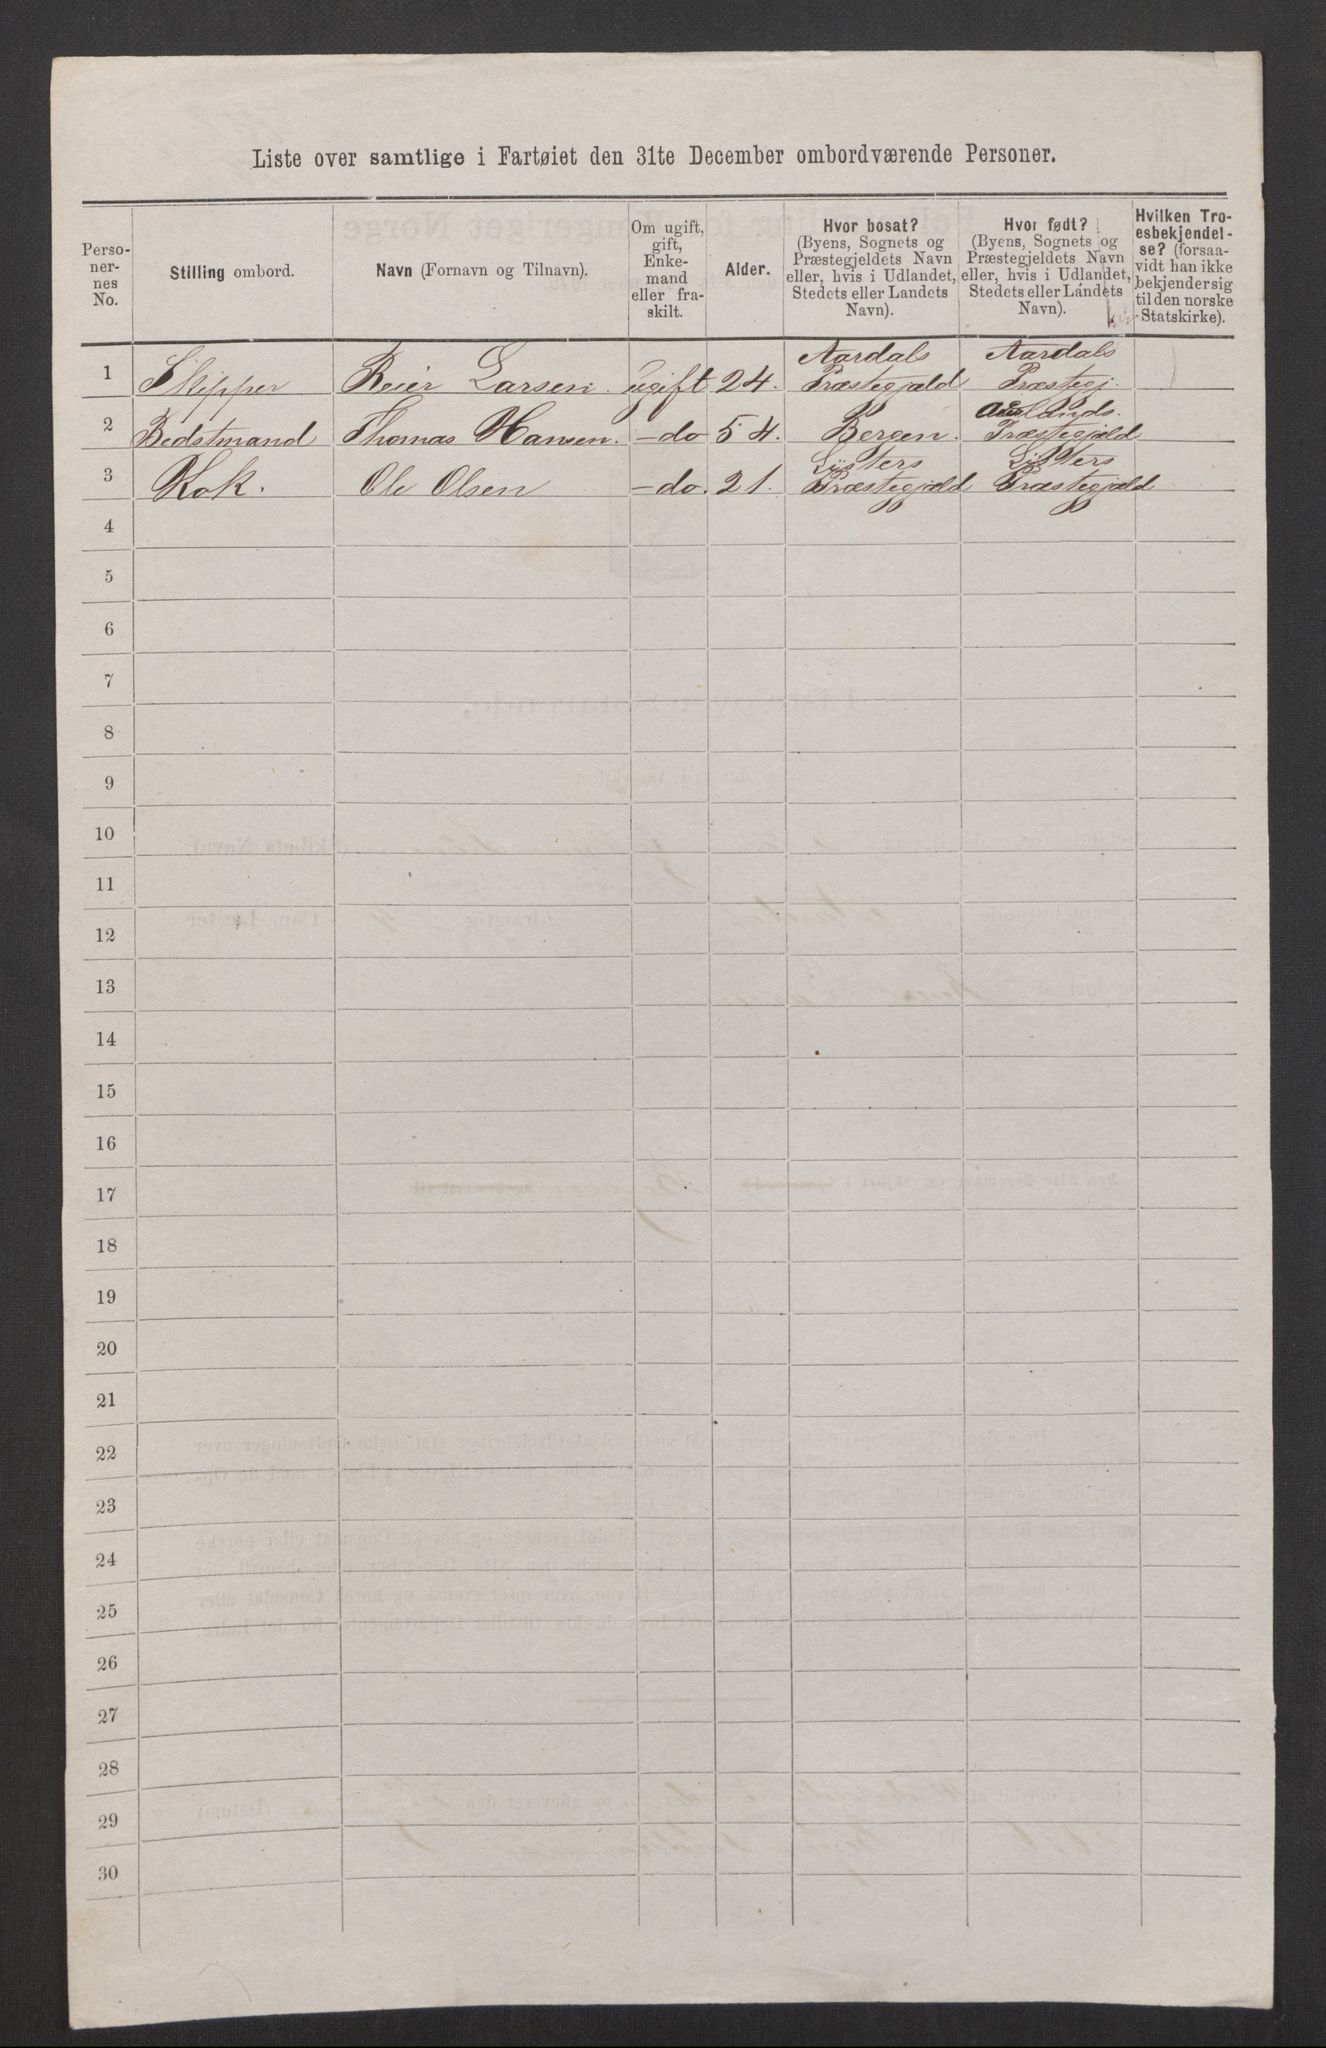 Liste over samtlige i Fartøiet den 31te December ombordværende Personer.
Perso-
ner-
nes
No.
Stilling ombord.
Navn (Fornavn og Tilnavn).
Om ugift,
gift,
Enke-
mand
eller fra-
skilt.
Alder.
Hvor bosat?
(Byens, Sognets og
Præstegjeldets Navn
eller, hvis i Udlandet,
Stedets eller Landets
Navn).
Hvor født?
(Byens, Sognets og
Præstegjeldets Navn
eller, hvis i Udlandet,
Stedets eller Landets
Navn).
Hvilken Tro-
esbekjendel-
se? (forsaa-
vidt han ikke
bekjender sig
til den norske
Statskirke).
1 Skipper Reier Larsen. ugift 24. Aardals Præstegjæld Aardals Præstegj.
2 Bedstmand Thomas Hansen. -do 54. Bergen. Aurlands. Præstegjæld
3 Kok. Ole Olsen -do. 21. Lÿsters Præstegjæld Lÿsters Præstegjæld
4
5
6
7
8
9
10
11
12
13
14
15
16
17
18
19
20
21
22
23
24
25
26
27
28
29
30